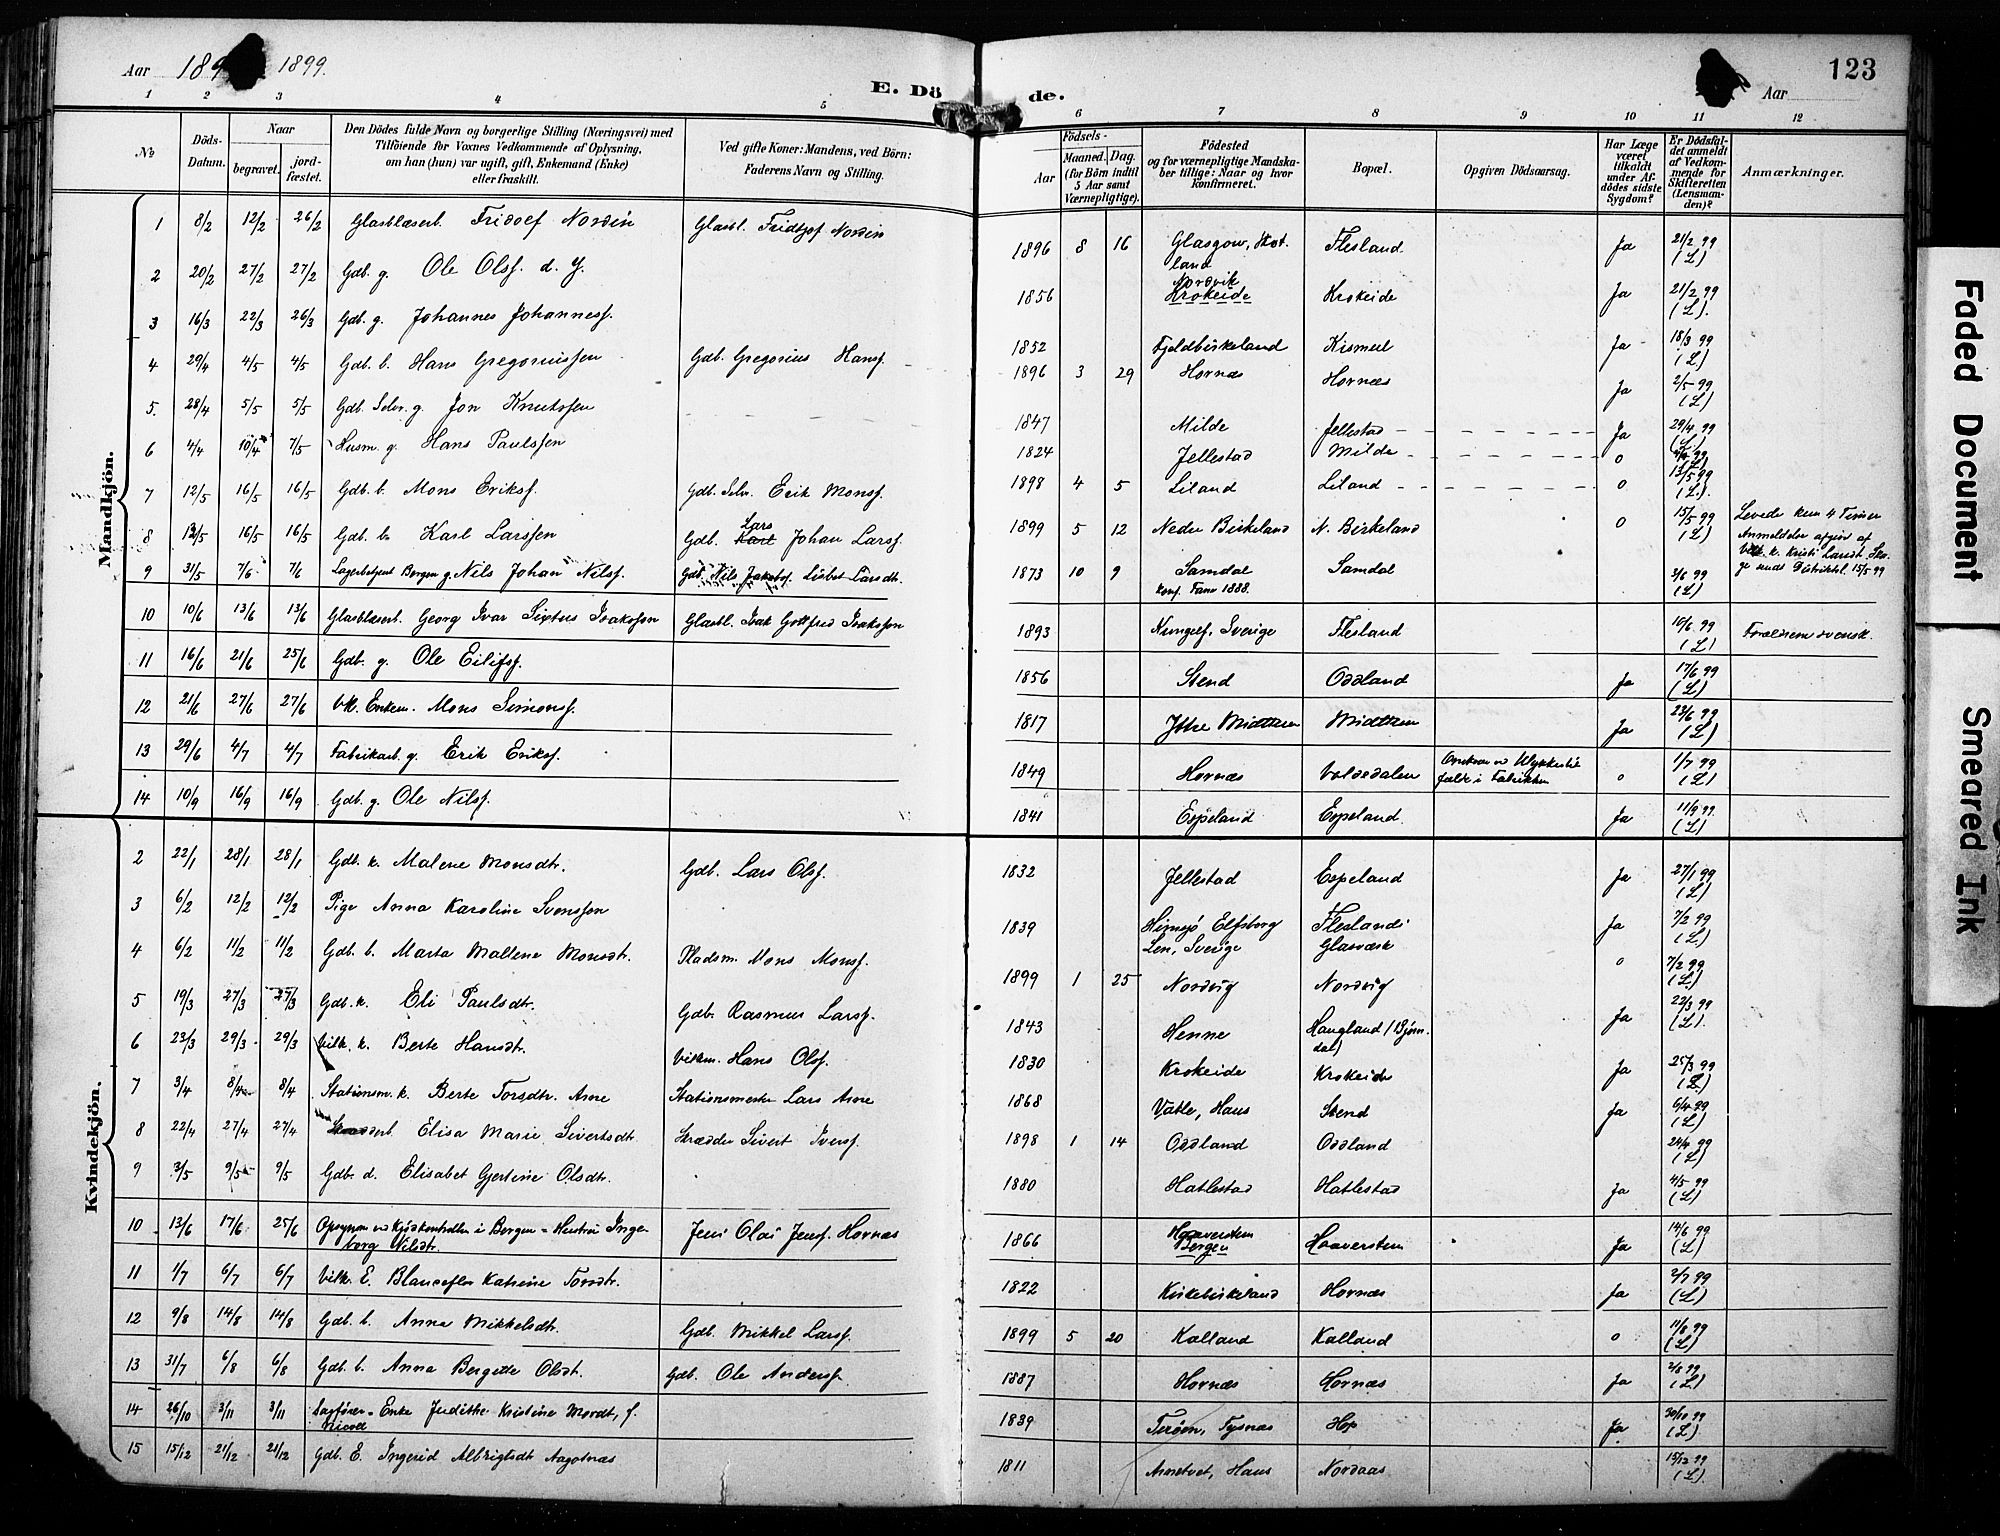 Aar 189 1899.
E. Dö de.
Aar
123
1 2 3 4 5 6 7 8 9 10 11 12
No
Döds-Datum.
Naar
begravet.
jord-fæstet.
Den Dödes fulde Navn og borgerlige Stilling (Næringsvei) med
Tilföiende for Voxnes Vedkommende af Oplysning,
om han (hun) var ugift, gift, Enkemand (Enke)
eller fraskilt.
Ved gifte Koner: Mandens, ved Börn:
Faderens Navn og Stilling.
Födsels-
Aar
Maaned. Dag.
(for Börn indtil
5 Aar samt
Værnepligtige).
Födested
og for værnepligtige Mandska-
ber tillige: Naar og hvor
konfirmeret.
Bopæl.
Opgiven Dödsaarsag.
Har Læge
været
tilkaldt
under Af-
dödes sidste
Sygdom?
Er Dödsfal-
det anmeldt
af Vedkom-
mende for
Skifteretten
(Lensman-
den)?
Anmærkninger.
Mandkjön.
1 8/2 12/2 26/2 Glasblæserb. Fridolf Nordin Glasbl. Fridtjof Nordin 1896 8 16 Glasgow, Skot-land Flesland. Ja 21/2 99 (L)
2 20/2 27/2 27/2 Gdb. g. Ole Olsf. d. y. 1856 Nordvik Krokeide Krokeide Ja 21/2 99 (L).
3 16/3 22/3 26/3 Gdb. g. Johannes Johannesf. 1852 Fjeldbirkeland Kismul Ja 18/3 99 (L)
4 29/4 4/5 4/5 Gdb. b. Hans Gregoriussen Gdb. Gregorius Hansf. 1896 3 29 Hornæs Hornæs Ja 2/5 99 (L)
5. 28/4 5/5 5/5 Gdb. Selv. g. Jon Knutssen 1847 Milde Jellestad Ja 29/4 99 (L)
6 4/4 10/4 7/5 Husm. g. Hans Paulssen 1824 Jellestad Milde o
7 12/5 16/5 16/5 Gdb. b. Mons Eriksf. Gdb. Selv. Erik Monsf. 1898 4 5 Liland Liland o 13/5 99 (L).
8 13/5 16/5 16/5 Gdb. b. Karl Larssen Gdb. Karl Lars Johan Larsf. 1899 5 12 Nedre Birkeland N. Birkeland o 15/5 99 (L) Levede kun 4 Timer
Anmeldelse afgiv. af
9 31/5 7/6 7/6 Lagerbetjent Bergen g. Nils Johan Nilsf. Gdb. Nils Jakobsf. Lisbet Larsdt. 1873 10 9 Samdal konf. Fane 1888. Samdal 3/6 99 (L)
10 10/6 13/6 13/6 Glasblæserb. Georg Ivar Sixtus Isaksson Glasbl. Isak Gottfred Isaksson 1893 Sverige Flesland 10/6 99 (L) Forældrene svensk.
11 16/6 21/6 25/6 Gdb. g. Ole Eilifsf. 1856 Stend Oddland Ja 17/6 99 (L)
12 21/6 27/6 27/6 Vk. Enkem. Mons Simonsf. 1817 Ytre Midttun Midttun Ja 23/6 99 (L)
13 29/6 4/7 4/7 Fabrikarb. g. Erik Eriksf. 1849 Hornæs Valdedalen Omkom ved Ulykkestil-fælde i Fabrikken o 1/7 99 (L)
14 10/9 16/9 16/9 Gdb. g. Ole Nilsf. 1841 Espeland Espeland. Ja 11/9 99. (L)
Kvindekjön.
2 22/1 28/1 28/1 Gdb. k. Malene Monsdtr. Gdb. Lars Olsf. 1832 Jellestad Espeland Ja 27/1 99 (L)
3 6/2 12/2 12/2 Pige Anna Karoline Svensson 1839 Elfsborg Len, Sverige Fleslands Glasværk Ja 7/2 99 (L.)
4 6/2 11/2 11/2 Gdb. b. Marta Mallene Monsdtr. Pladsm. Mons Monsf. 1899 1 25 Nordvig Nordvig o 7/2 99 (L)
5 19/3 27/3 27/3 Gdb. k. Eli Paulsdtr. Gdb. Rasmus Larsf. 1843 Henne Haugland (Bjørn-dal) Ja 22/3 99 (L).
6 23/3 29/3 29/3 Vilk. k. Berte Hansdtr. Vilkm. Hans Olsf. 1830 Krokeide Krokeide Ja 25/3 99 (L)
7 3/4 8/4 8/4 Stationsm. k. Berte Torsdtr. Arne Stationsmester Lars Arne 1868 Vatle, Haus Stend Ja 6/4 99 (L)
8 22/4 27/4 27/4 Skrædderb. Elisa Marie Sivertsdtr. Skrædder Sivert Iversf. 1898 1 14 Oddland Oddland 24/4 99 (L)
9 3/5 9/5 9/5 Gdb. d. Elisabet Gjertine Olsdtr. 1880 Hatlestad Hatlestad Ja 4/5 99 (L)
10 13/6 17/6 25/6 Opsynsm. ved Kjødkontrollen i Bergen - Hustru Inge-borg Nilsdtr. Jens Olai Jensf. Hornæs 1866 Haaverstein Bergen Haaverstein Ja 14/6 99 (L)
11 1/7 6/7 6/7 Vilk. E. Blanceflor Katrine Torsdtr. 1822 Kirkebirkeland Hornæs Ja 2/7 99 (L)
12 9/8 14/8 14/8 Gdb. b. Anna Mikkelsdtr. Gdb. Mikkel Larsf. 1899 5 20 Kalland Kalland o 11/8 99 (L)
13 31/7 6/8 6/8 Gdb. b. Anna Bergitte Olsdt. Gdb. Ole Andersf. 1887 Hornæs Hornæs Ja 2/8 99. (L)
14 26/10 3/11 3/11 Sagfører-Enke Judithe Kristine Mordt, f. 1839 Terøen, Tysnæs Hop Ja 30/10 99 (L)
15 15/12 21/12 21/12 Gdb. E. Ingerid Albrigtsdt Aagotnæs 1811 Haus Nordaas 15/12 99 (L).
Faded Document
Smeared Ink